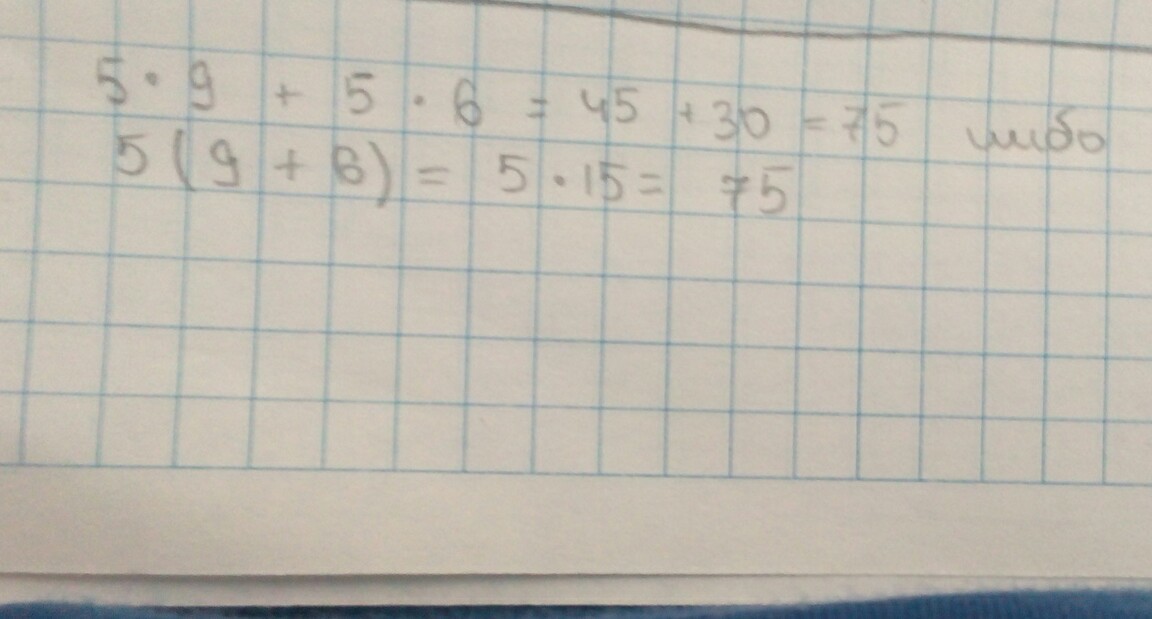 5 · 9 + 5 · 6 = 45 + 30 = 75 либо
5 (9 + 6) = 5 · 15 = 75